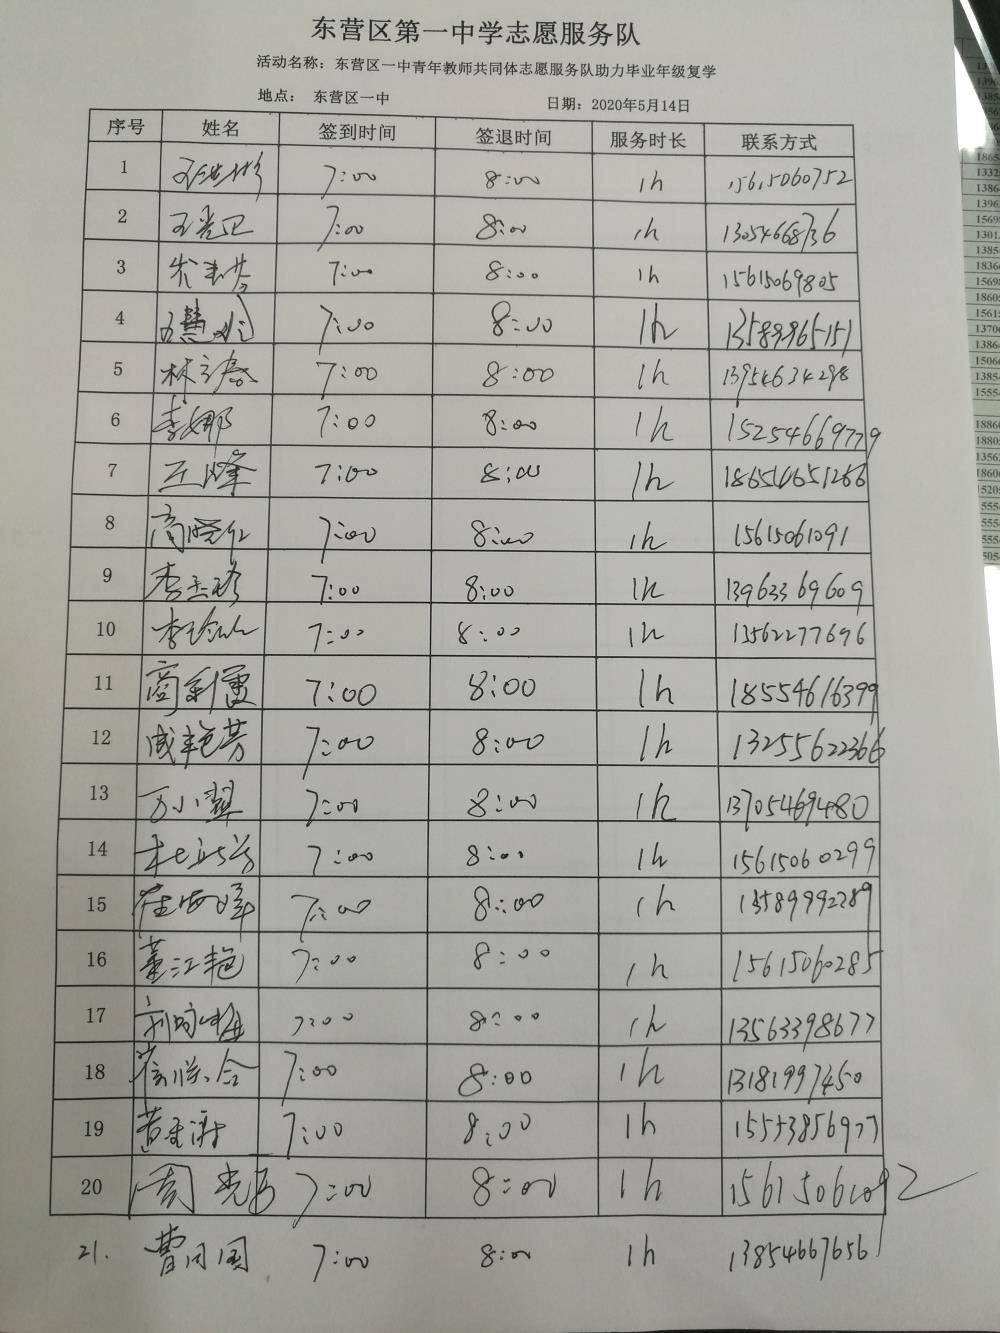 东营区第一中学志愿服务队
活动名称：东营区一中青年教师共同体志愿服务队助力毕业年级复学
地点： 东营区一中 日期：2020年5月14日
序号 姓名 签到时间 签退时间 服务时长 联系方式
1 7:00 8:00 1h 15615060752
2 7:00 8:00 1h 13054668736
3 7:00 8:00 1h 15615069805
4 7:00 8:00 1h 13589965151
5 林立春 7:00 8:00 1h 13954634298
6 李娜 7:00 8:00 1h 15254669779
7 王峰 7:00 8:00 1h 18654651266
8 高晓红 7:00 8:00 1h 15615061091
9 7:00 8:00 1h 13963369609
10 7:00 8:00 1h 13562277696
11 商利霞 7:00 8:00 1h 18554616399
12 成艳芳 7:00 8:00 1h 13255622366
13 万小翠 7:00 8:00 1h 13705469480
14 7:00 8:00 1h 15615060299
15 崔海峰 7:00 8:00 1h 13589992789
16 董江艳 7:00 8:00 1h 15615060285
17 7:00 8:00 1h 13563398677
18 7:00 8:00 1h 13181997450
19 7:00 8:00 1h 15553856977
20 7:00 8:00 1h 15615061092
21. 曹同国 7:00 8:00 1h 13854667656